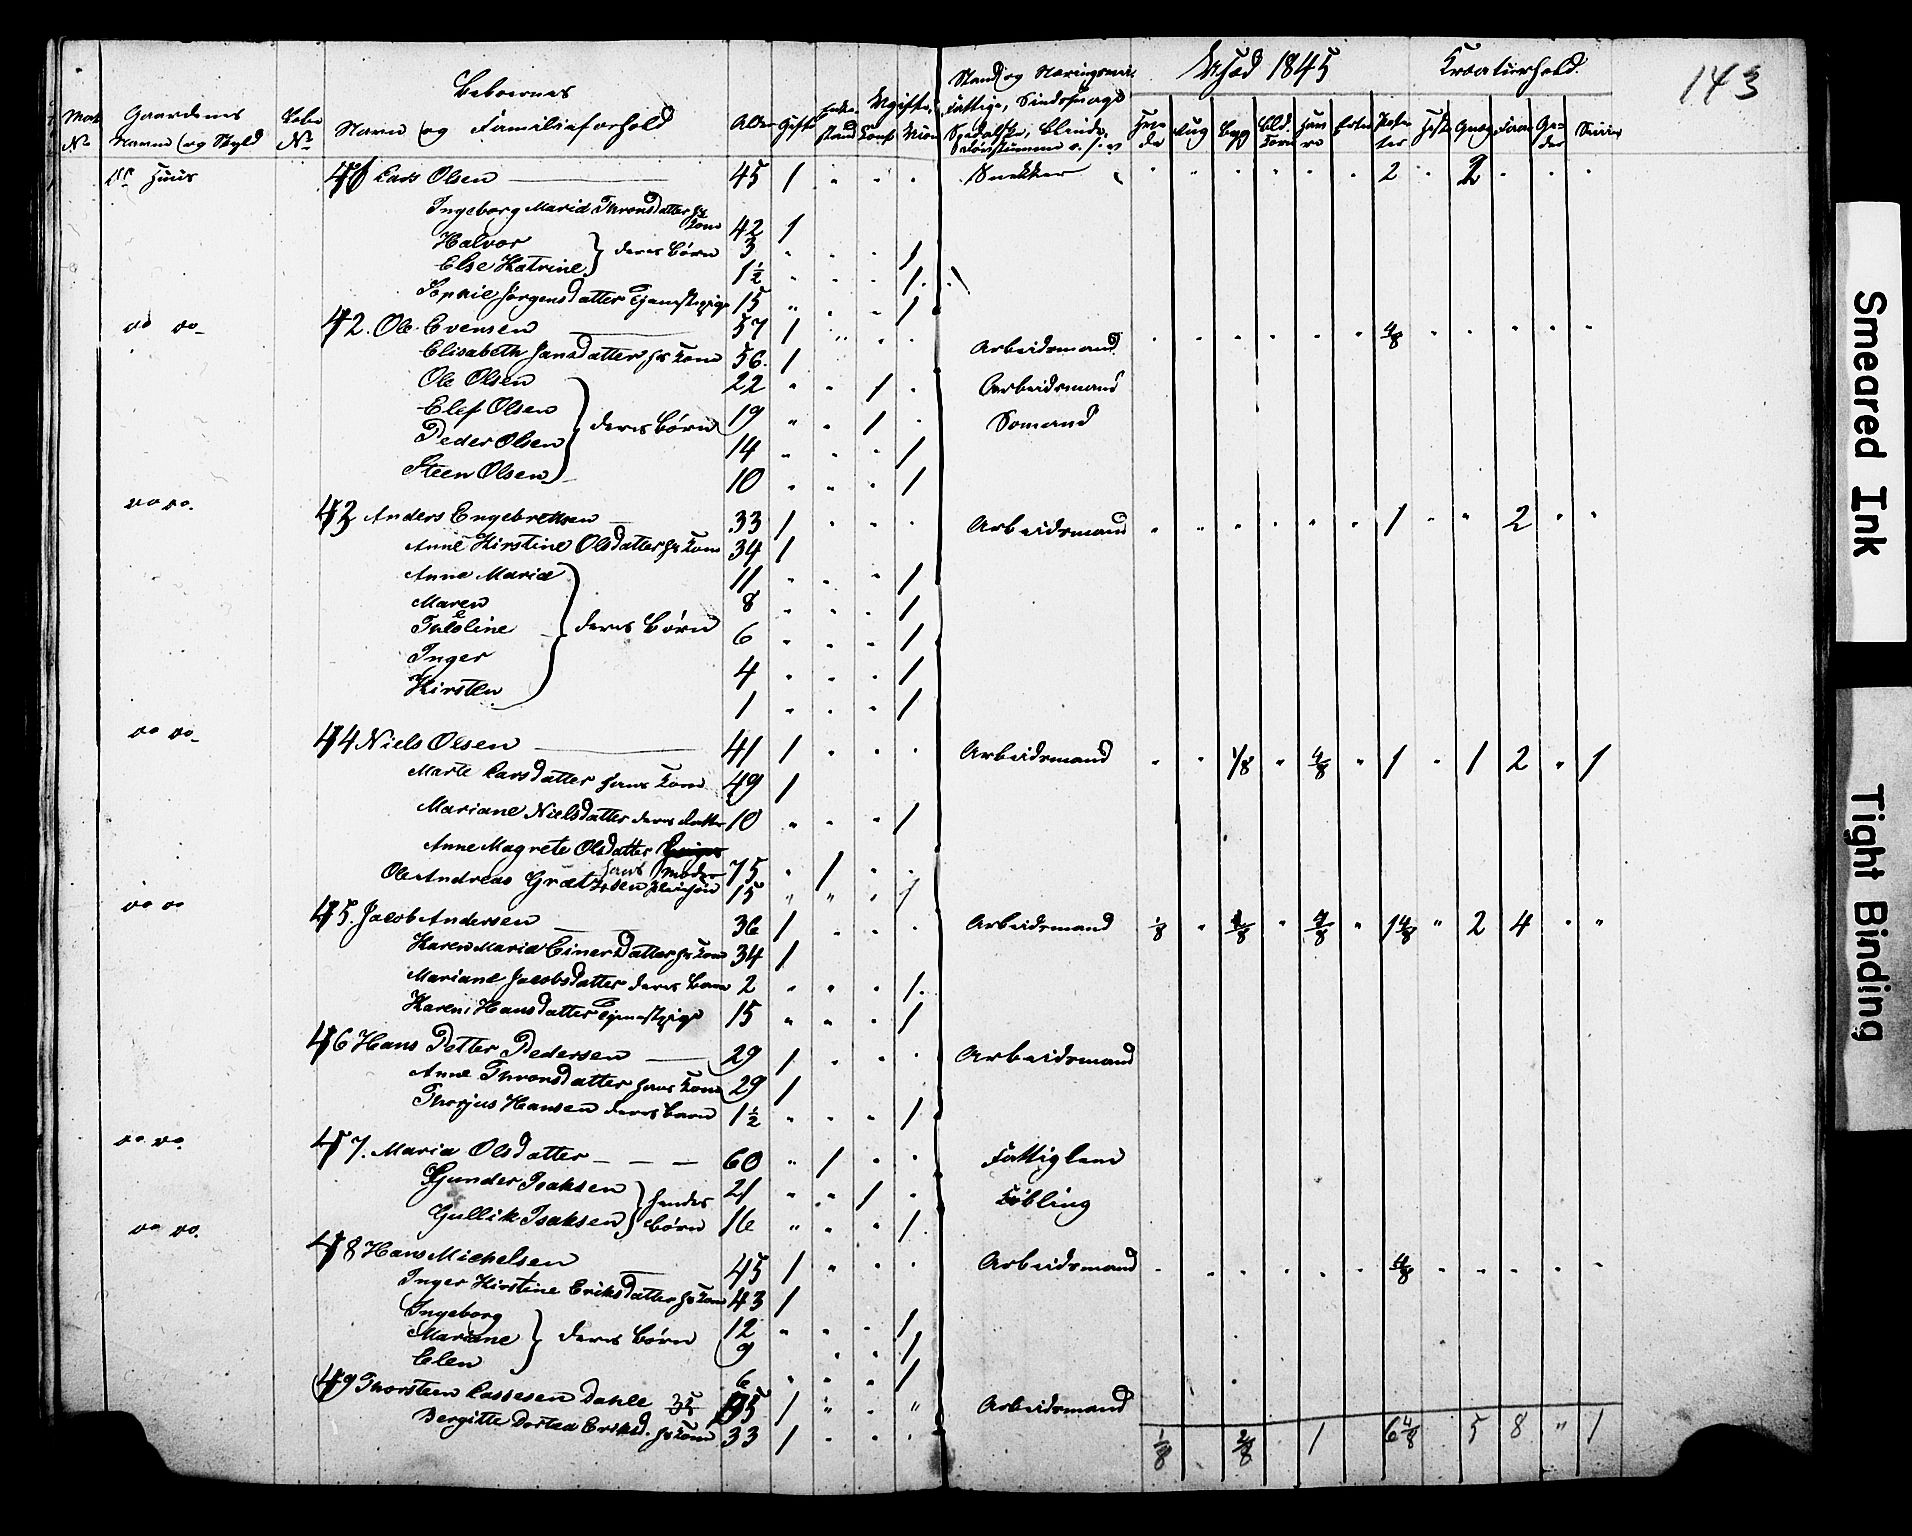 143
Beboernes
Udsæd 1845
Kreaturhold.
Stand og Næringsvei,
Fattige, Sindssvage
Matr. N° Gaardenes Navne og Skyld N° Navn og Familieforhold Alder Gifte
Huus 41 Lars Olsen 45 1 " " " Snekker " " " " " " 2 " 2 " " "
Ingeborg Maria Throndsdatter hs Kone 42 1
Halvor } deres Børn 3 " " " 1
Else Katrine 1½ " " " 1
Sophie Jørgensdatter Tjenestepige 15 " " " 1
do do 42. Ole Evensen 57 1 " " " Arbeidsmand " " " " " " 4/8 " " " " "
Elisabeth Jansdatter hs Kone 56. 1
Ole Olsen 22 " " 1 " Arbeidsmand
Elef Olsen } deres Børn 19 " " 1 " Sømand
Peder Olsen 14 " " " 1
Steen Olsen 10 " " " 1
do do. 43 Anders Engebretsen 33 1 " " " Arbeidsmand " " " " " " 1 " " 2 " "
Anne Kirstine Olsdatter hs Kone 34 1
Anne Maria 11 " " " 1
Maren 8 " " " 1
Theoline } deres Børn 6 " " " 1
Inger 4 " " " 1
Kirsten 1 " " " 1
do do 44 Niels Olsen 41 1 " " " Arbeidsmand " " 1/8 " 4/8 " 1 " 1 2 " 1
Marte Larsdatter hans Kone 49 1
Mariane Nielsdatter deres datter 10 " " " 1
Anne Magrete Olsdatter
hans Moder 75 " 1 " "
Ole Andreas 15 " " " 1
do do 45. Jacob Andersen 36 1 " " " Arbeidsmand 1/8 " 1/8 " 4/8 " 1 4/8 " 2 4 " "
Karen Maria Einersdatter hs Kone 34 1
Mariane Jacobsdatter deres Barn 2 " " " 1.
Karen Hansdatter Tjenestepige 15 " " " 1
46 Hans Petter Pedersen 29 1 " " " Arbeidsmand
Anne Thronsdatter hans Kone 29 1
Thorjus Hansen deres Barn 1½ " " " 1
do do. 47. Maria Olsdatter 60 " 1 " " Fattiglem
Gunder Isaksen } hendes 21 " " 1 "
Gullik Isaksen } Børn 16 " " " 1
do do. 48 Hans Michelsen 45 1 " " " Arbeidsmand " " " " " " 4/8 " " " " "
Inger Kirstine Eriksdatter hs Kone 43 1
Ingeborg 12 " " " 1
Mariane } deres Børn 9 " " 1
Elen 6 " " " 1
49 Thorsten Lassesen Dahle 35 1 " " " Arbeidsmand
Bergitte Dortea Eriksd. hs Kone 33 1 " " "
1/8 2/8 1 6 4/8 5 8 " 1
Smeared Ink
Tight Binding